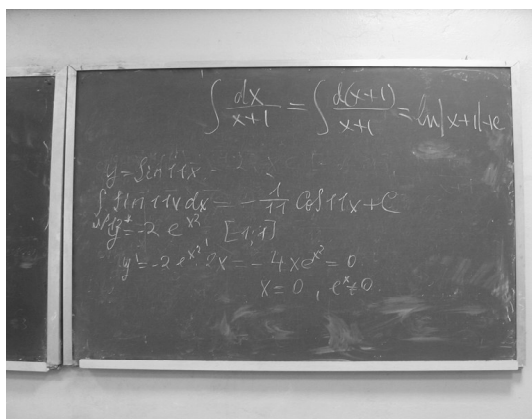 ∫ dx/(x+1) = ∫ d(x+1)/(x+1) = ln|x+1|+c
y = Sin 11x
∫ Sin 11x dx = -1/11 Cos 11x + C
y = -2 e^x² [-1,1]
y' = -2 e^x² · 2x = -4xe^x² = 0
x = 0 , e^x² ≠ 0